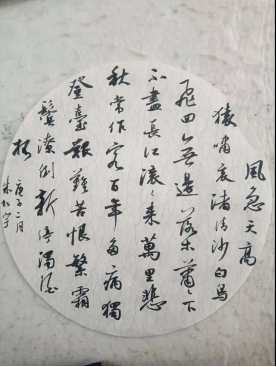 風急天高
猿嘯哀渚清沙白鳥
飛回無邊落木蕭〻下
不盡長江滾〻來萬里悲
秋常作客百年多病獨
登臺艱難苦恨繁霜
鬢潦倒新停濁酒
杯
庚子二月